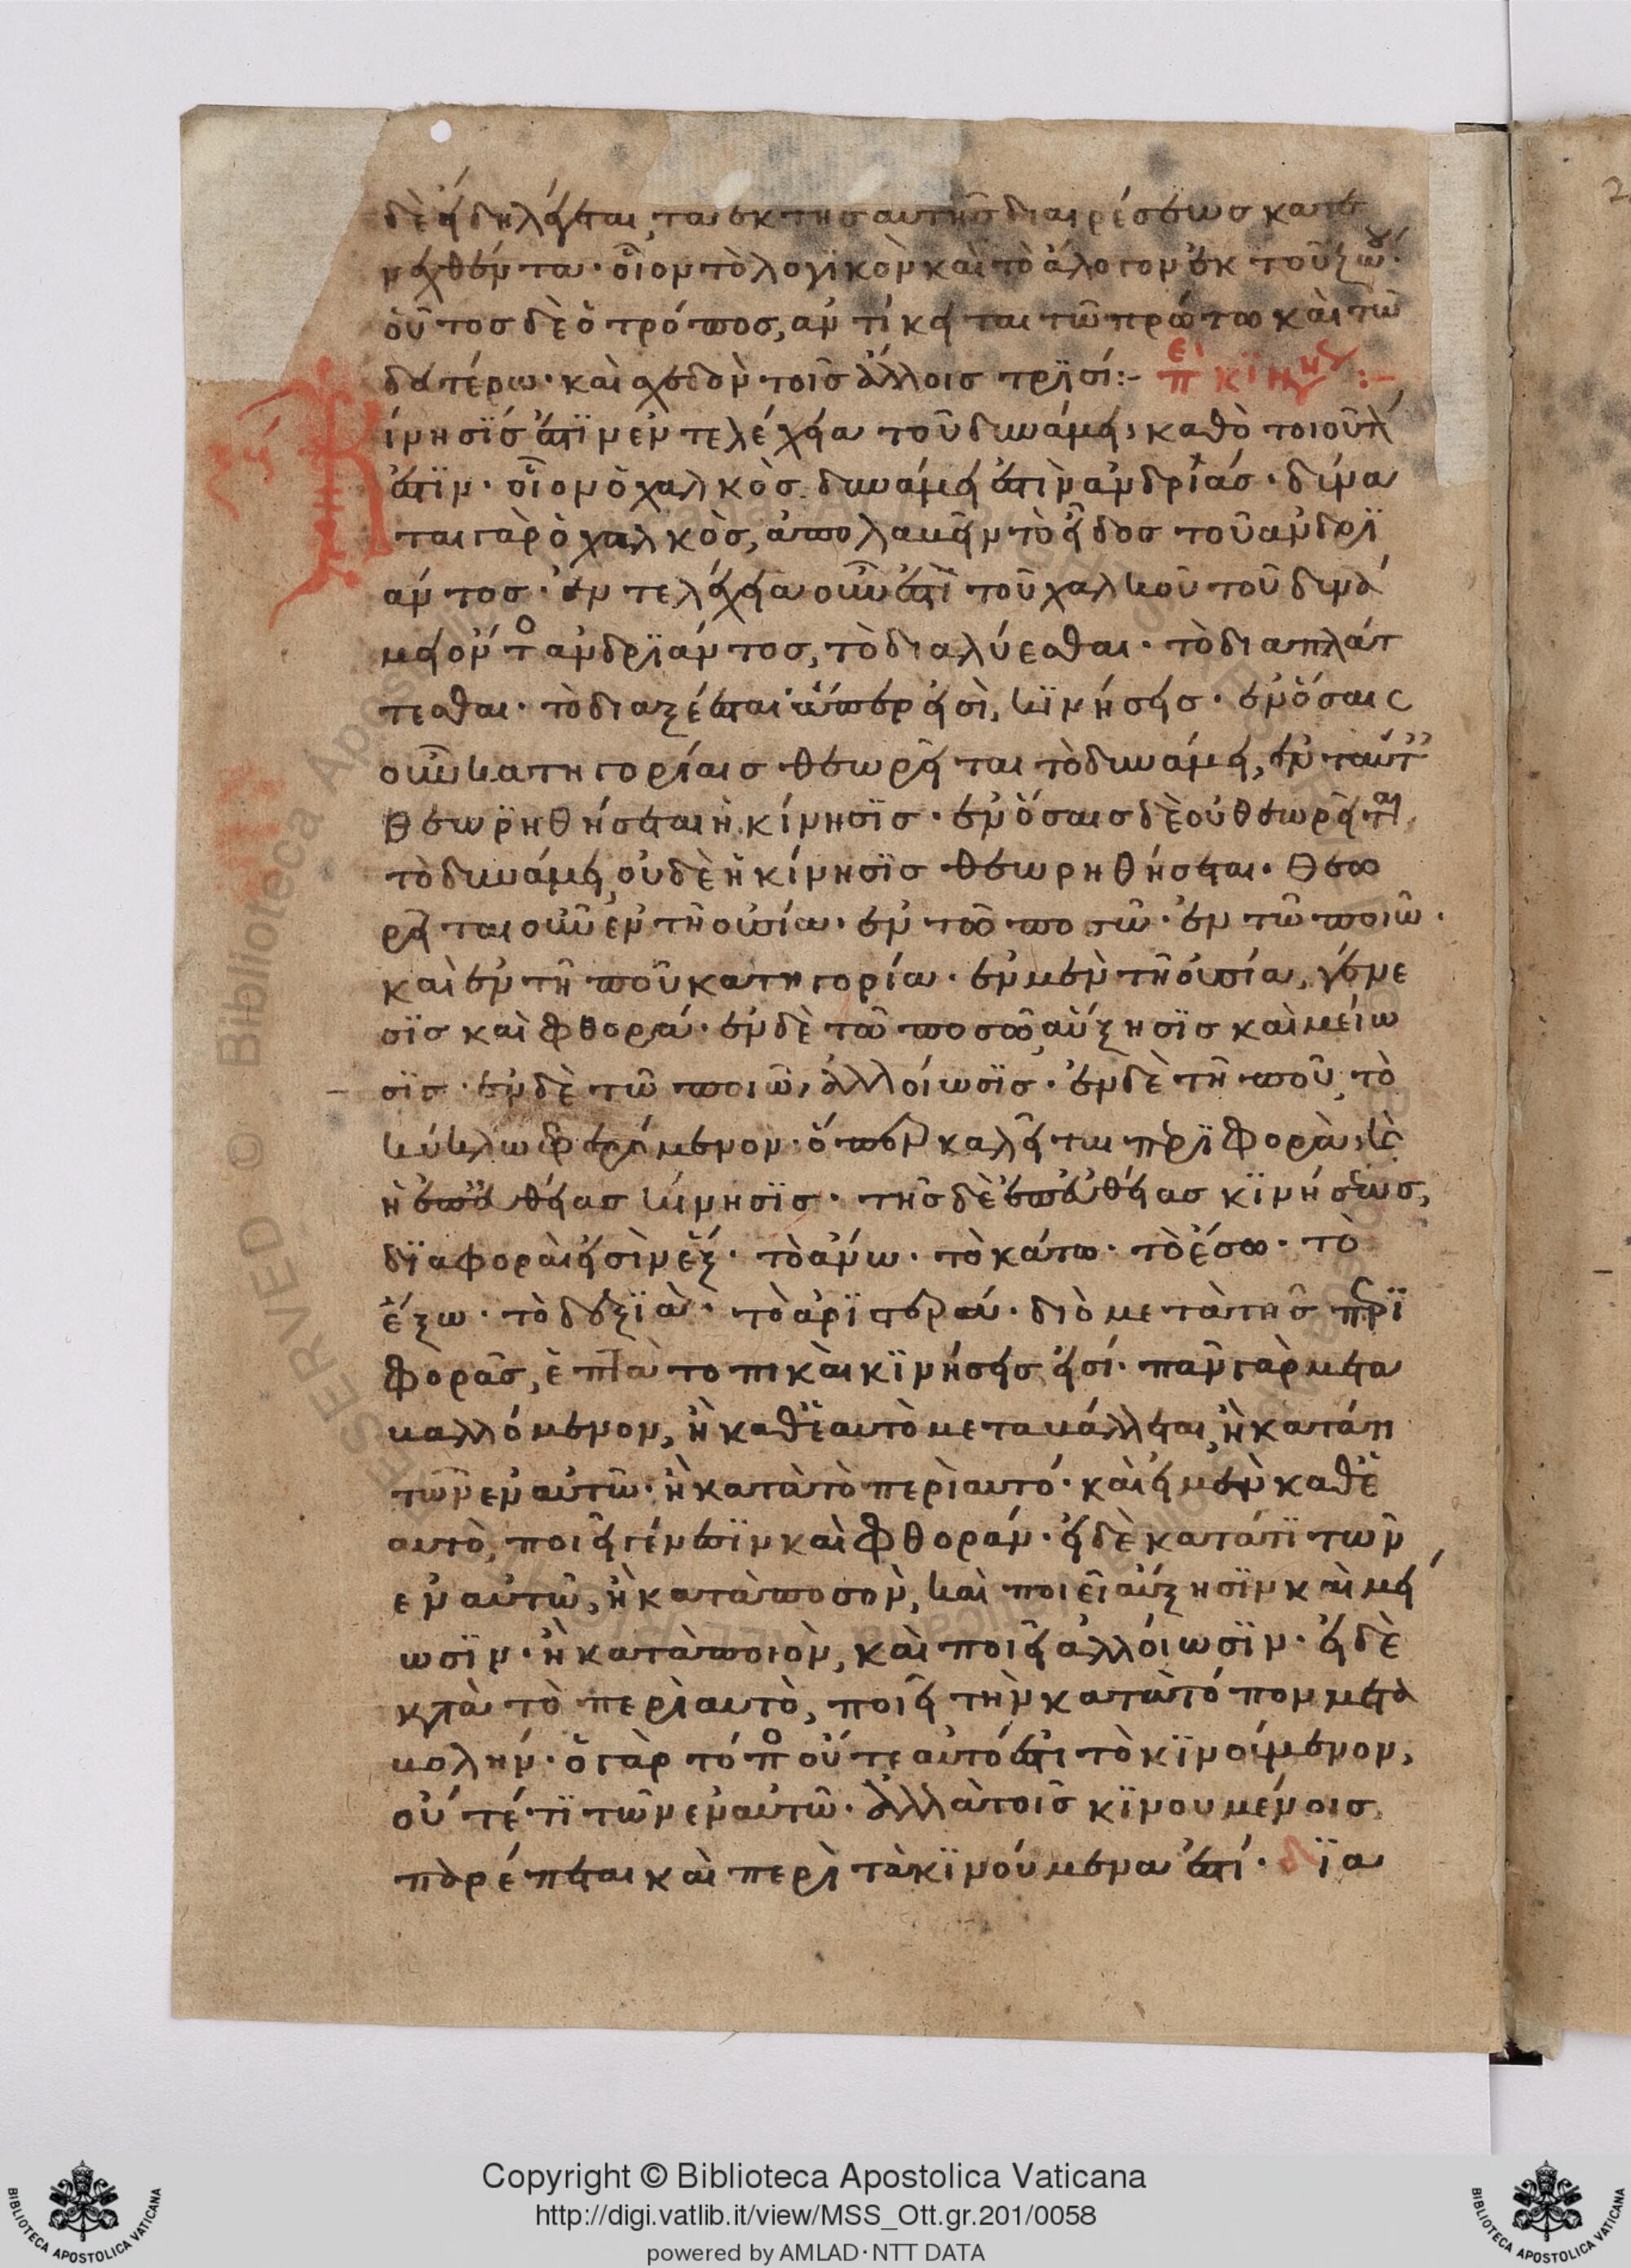 δὲ εἴδη λέγεται, τὰ ἐκ τῆς αὐτῆς διαιρέσεως κατε
νεχθέντα· οἷον τὸ λογικὸν καὶ τὸ ἄλογον ἐκ τοῦ ζώου·
οὗτος δὲ ὁ τρόπος, ἀντίκειται τῶ πρώτω καὶ τῶ
δευτέρω· καὶ σχεδὸν τοῖς ἄλλοις τρϊσί:-
ίνησϊς ἐστϊν ἐντελέχεια τοῦ δυνάμει, καθὸ τοιοῦτ
ἐστϊν· οἷον ὁ χαλκὸς δυνάμει ἐστὶν ἀνδρϊάς· δύνα
ται γὰρ ὁ χαλκὸς, ἀπολαβεῖν τὸ εἶδος τοῦ ἀνδρϊ
άντος· ἐντελέχεια οὖν ἐστϊ τοῦ χαλκοῦ τοῦ δυνά
μει ὄντος ἀνδρϊάντος, τὸ διαλύεσθαι· τὸ διαπλάτ
τεσθαι· τὸ διαξέεσθαι ἅπερ εἰσὶ, κϊνήσεις· ἐν ὅσαις
οὖν κατηγορίαις θεωρεῖται τὸ δυνάμει, ἐν ταύτ
θεωρϊηθήσεται ἡ κίνησϊς· ἐν ὅσαις δὲ οὐ θεωρεῖται
τὸ δυνάμει, οὐδὲ ἡ κίνησϊς θεωρηθήσεται· θεω
ρεῖται οὖν ἐν τῆ οὐσία· ἐν τῶ ποσῶ· ἐν τῶ ποιῶ·
καὶ ἐν τῆ ποῦ κατηγορία· ἐν μὲν τῆ οὐσία, γένε
σϊς καὶ φθορά· ἐν δὲ τῶ ποσῶ, αὔξησϊς καὶ μείω
σϊς· ἐν δὲ τῶ ποιῶ, ἀλλοίωσϊς· ἐν δὲ τῆ ποῦ, τὸ
κύκλω φερόμενον· ὅπερ καλεῖται περϊφορὰ, καὶ
ἡ ἐπ' εὐθείας κίνησϊς· τῆς δὲ ἐπ' εὐθείας κϊνήσεως,
δϊαφοραὶ εἰσὶν ἕξ· τὸ ἄνω· τὸ κάτω· τὸ ἔσω· τὸ
ἔξω· τὸ δεξϊὰ· τὸ ἀρϊστερά· διὸ μετὰ τῆς περϊ
φορᾶς, ἑπτὰ τοπικαὶ κϊνήσεις εἰσί· πᾶν γὰρ μετα
βαλλόμενον, ἢ καθ' ἑαυτὸ μεταβάλλεται, ἢ κατά τι
τῶν ἐν αὐτῶ· ἢ κατὰ τὸ περὶ αὐτό· καὶ εἰ μὲν καθ' ἑ
αυτὸ, ποιεῖ γένεσϊν καὶ φθοράν· εἰ δὲ κατά τϊ τῶν
ἐν αὐτῶ, ἢ κατὰ ποσὸν, καὶ ποιεῖ αὔξησϊν καὶ μεί
ωσϊν· ἢ κατὰ ποιὸν, καὶ ποιεῖ ἀλλοίωσϊν· εἰ δὲ
κατὰ τὸ περὶ αὐτὸ, ποιεῖ τὴν κατὰ τόπον μετα
βολήν· ὁ γὰρ τόπος οὔτε αὐτό ἐστι τὸ κϊνούμενον,
οὔτέ τϊ τῶν ἐν αὐτῶ· ἀλλὰ τοῖς κϊνουμένοις
παρέπεται καὶ περὶ τὰ κϊνούμενα ἐστί· δϊα
Copyright © Biblioteca Apostolica Vaticana
http://digi.vatlib.it/view/MSS_Ott.gr.201/0058
powered by AMLAD·NTT DATA
BIBLIOTECA APOSTOLICA VATICANA
BIBLIOTECA APOSTOLICA VATICANA